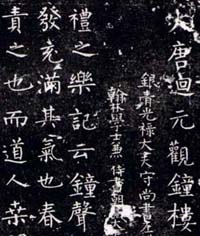 大唐迴元觀鐘樓
銀青光祿大夫守尚書左
翰林學士兼侍書朝
禮之樂記云鐘聲
發充滿其氣也春
責之也而道人桒